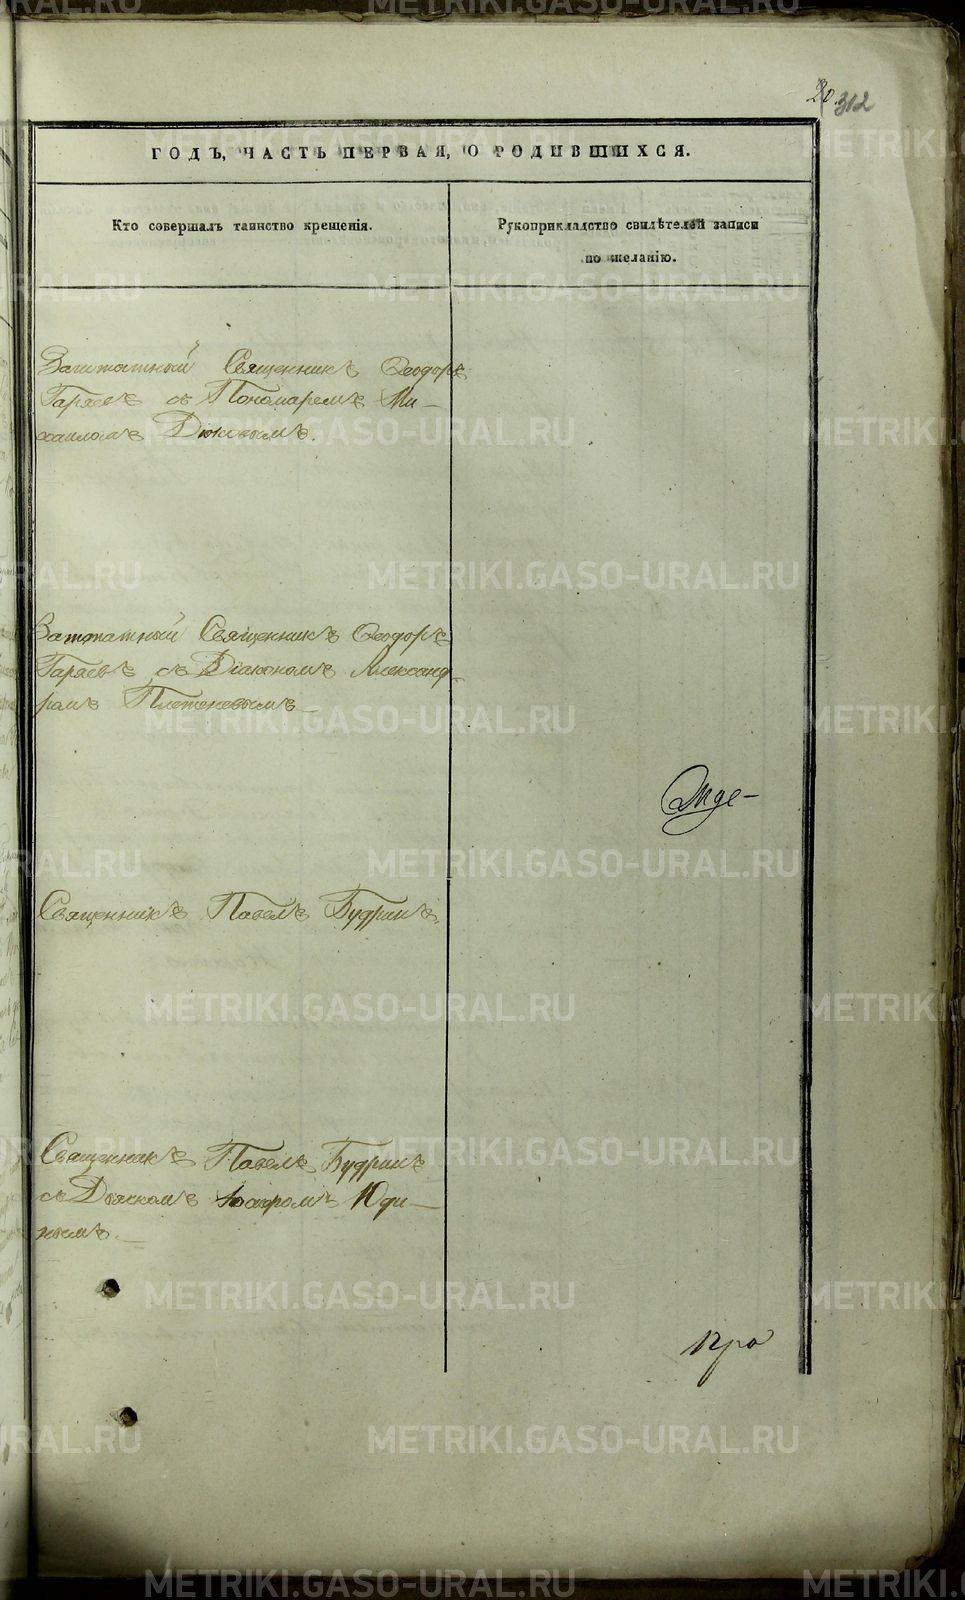 20. 312
ГОДЪ, ЧАСТЬ ПЕРВАЯ, О РОДИВШИХСЯ.
Кто совершалъ таинство крещенія.
Рукоприкладство свидѣтелей записи
по желанію.
Заштатный Священникъ Ѳеодоръ
Гаряевъ съ Пономаремъ Ми-
хаиломъ
Заштатный Священникъ Ѳеодоръ
Гаряевъ съ Діакономъ Александ-
ромъ Плетеневымъ
Священникъ Павелъ Будринъ
Священникъ Павелъ Будринъ
съ Дьячкомъ Юди-
нымъ.
METRIKI.GASO-URAL.RU